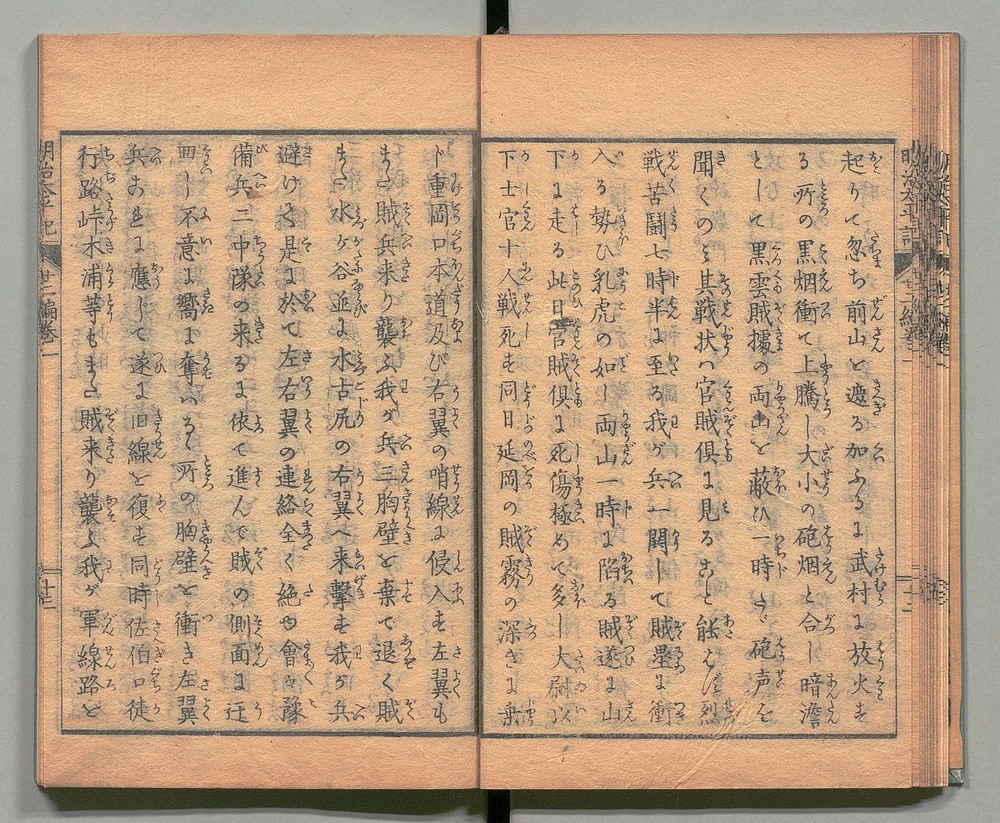 起りて忽ち前山を遮る加ふるに武村に放火す
る所の黒烟衝て上騰し大小の砲烟と合し暗澹
として黒雲賊據の両山を蔽ひ一時たゞ砲声を
聞くのミ其戦状ハ官賊倶に見ること能はず烈
戦苦闘七時半に至る我が兵一関して賊塁に衝
入る勢ひ乳虎の如し両山一時に陥る賊遂に山
下に走る此日官賊倶に死傷極めて多し大尉以
下士官十人戦死す同日延岡の賊霧の深きに乗
ト重岡口本道及び右翼の哨線に侵入す左翼も
また賊兵来り襲ふ我が兵三胸壁を棄て退く賊
また水ヶ谷並に水古尻の右翼へ来撃す我が兵
避けく是に於て左右翼の連絡全く絶ゆ會々豫
備兵二中隊の来るに依て進んで賊の側面に迂
回し不意に嚮に奪ハるゝ所の胸壁を衝き左翼
兵おほに應じて遂に旧線を復す同時佐伯口徒
行路峠木浦等もまた賊来り襲ふ我が軍線路を
明治太平記
廿二編巻一
十二
明治太平記
廿二編巻一
十三